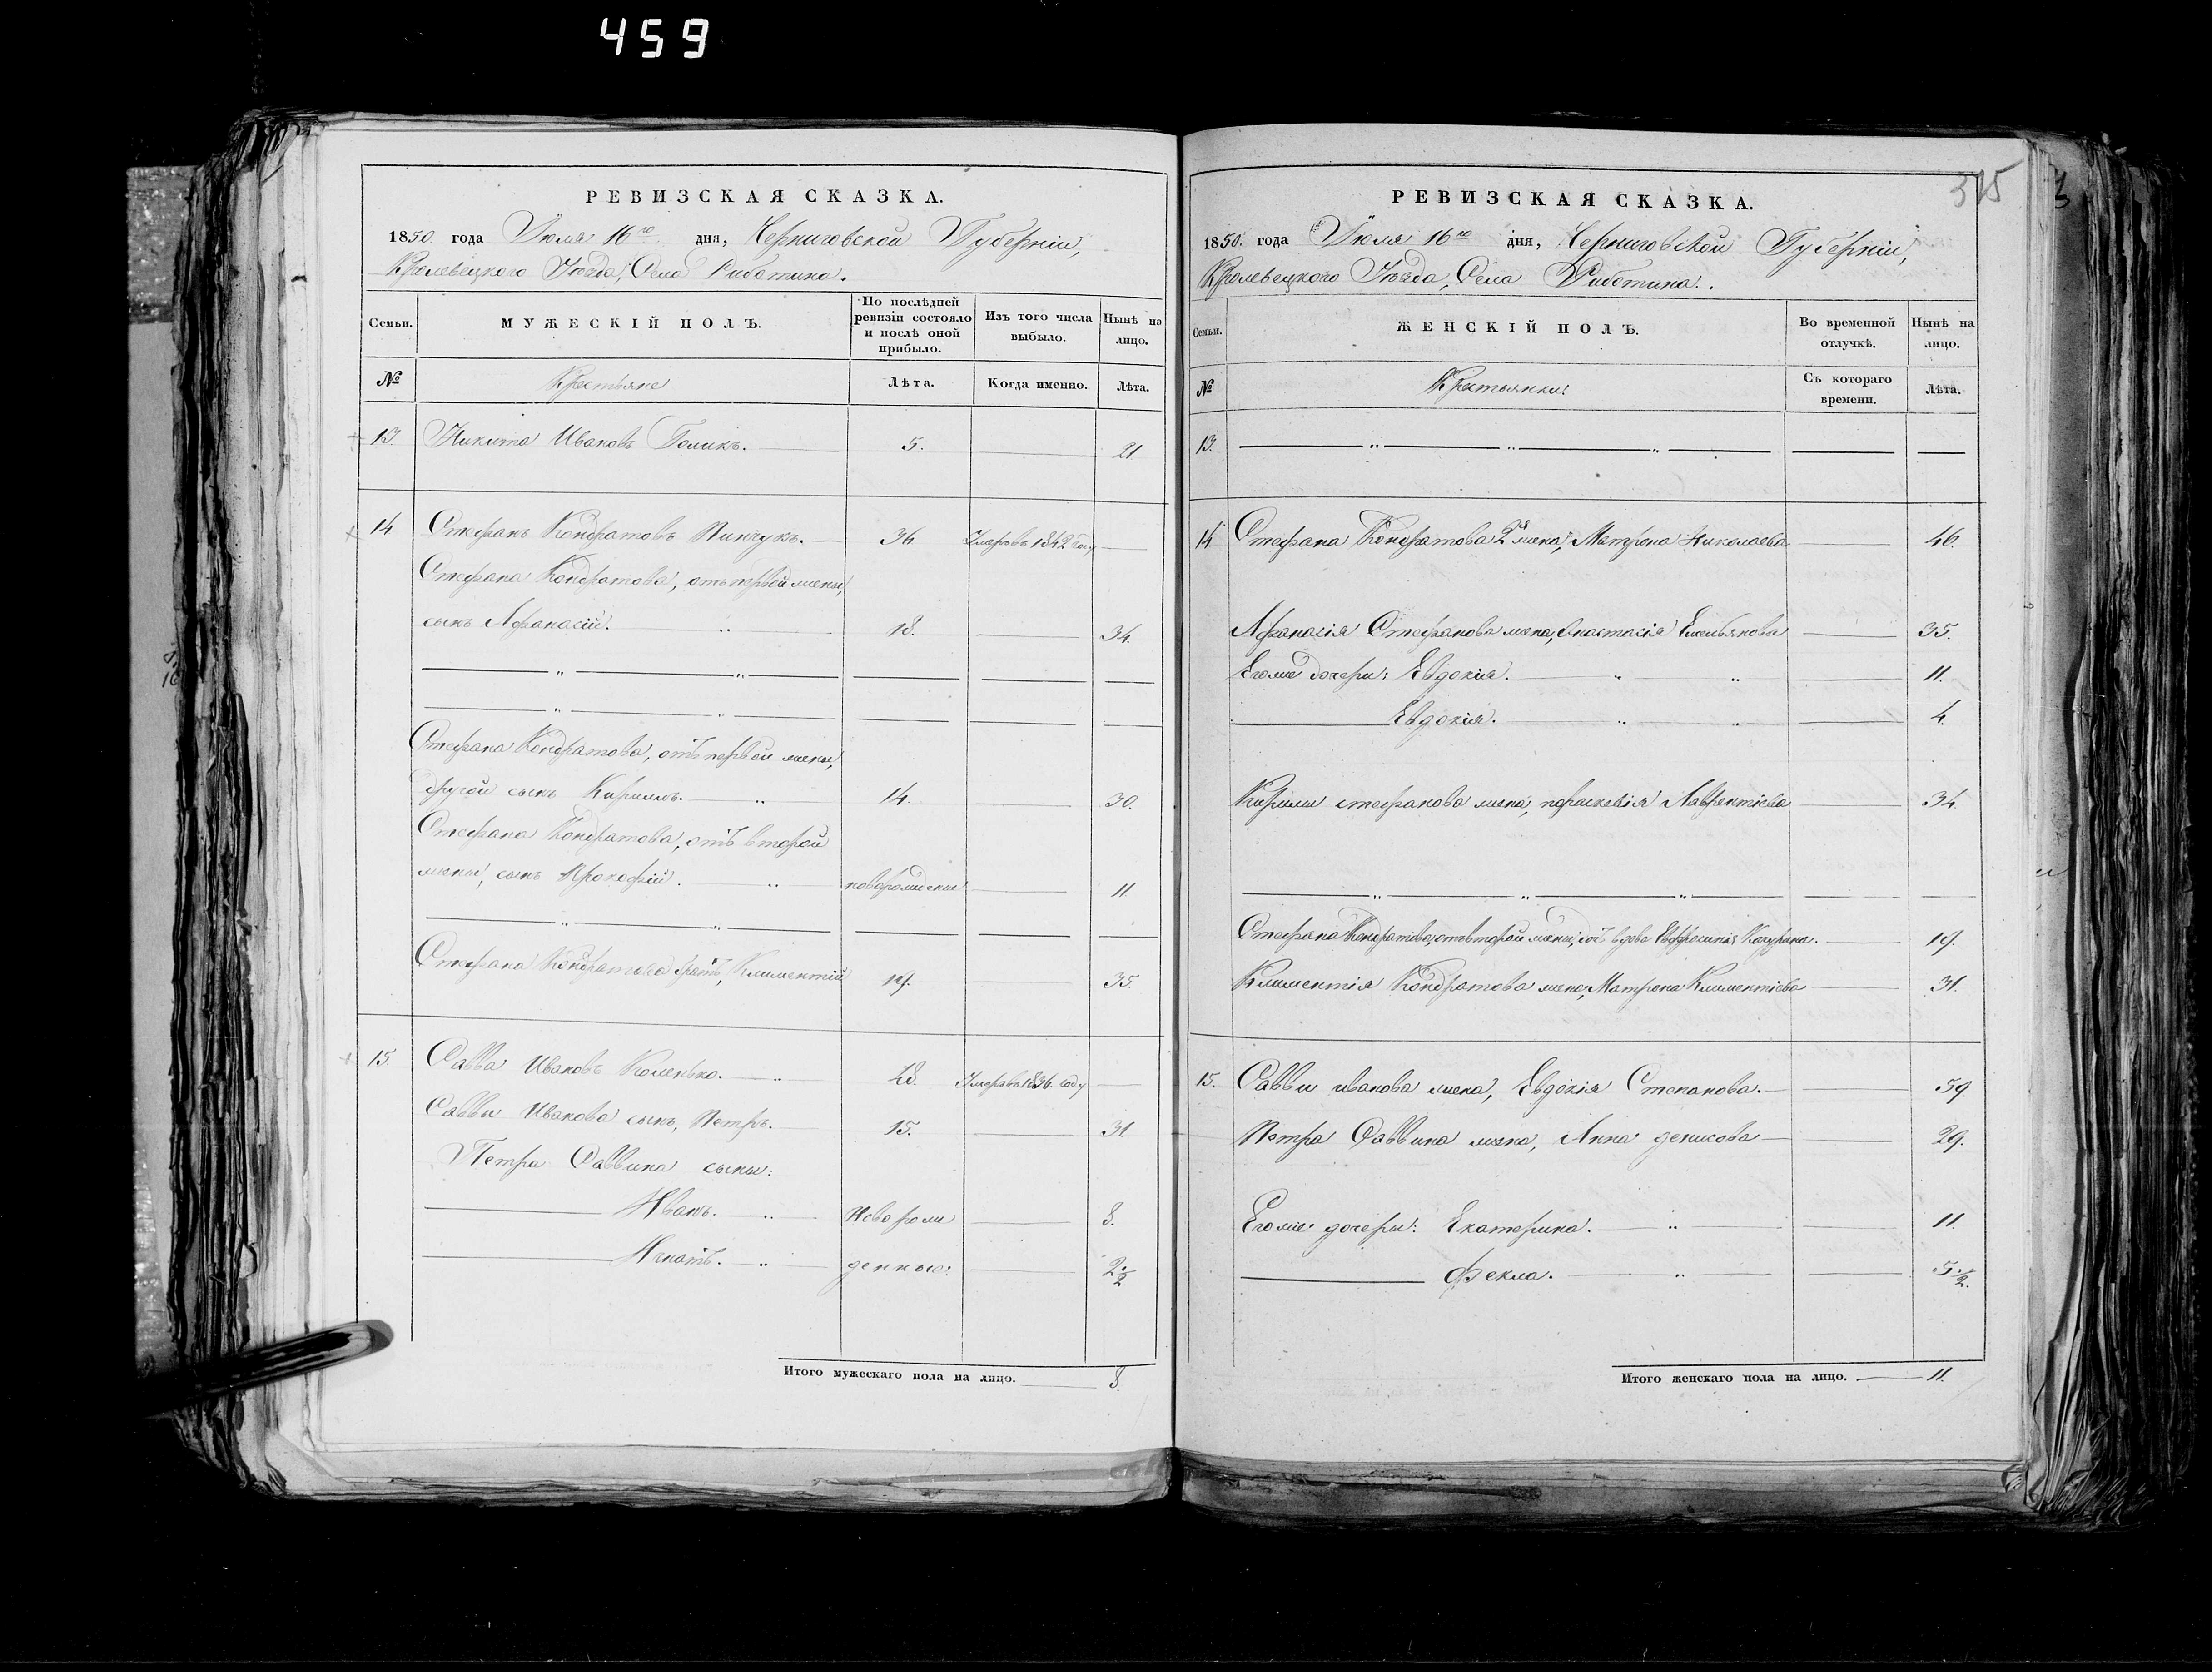 459
РЕВИЗСКАЯ СКАЗКА.
1850. года Июля 16го дня, Черниговской Губерніи,
Кролевецкого Уѣзда, Села Риботина.
Семьи.
МУЖЕСКІЙ ПОЛЪ.
По послѣдней ревизіи состояло и послѣ оной прибыло.
Изъ того числа выбыло.
Нынѣ на лицо.
№
Крестьяне
Лѣта.
Когда именно.
Лѣта.
13. Никита Ивановъ Голикъ. 5. 21
14 Стефанъ Кондратовъ Пинчукъ. 36 Умеръ въ 1842 году
Стефана Кондратова, отъ первой жены,
сынъ Афанасій. 18. 34.
Стефана Кондратова, отъ первой жены,
другой сынъ Кириллъ. 14. 30.
Стефана Кондратова, отъ второй
жены, сынъ Прокофій. новорожденый 11
Стефана Кондратова братъ, Климентій 19. 35.
15. Савва Ивановъ Коленько. 48. Умеръ въ 1836. году
Саввы Иванова сынъ, Петръ. 15. 31
Петра Саввина сыны:
Иванъ. Новорож 8.
Игнатъ. денные: 2 1/2
Итого мужескаго пола на лицо. 8.
315
РЕВИЗСКАЯ СКАЗКА.
1850. года Июля 16го дня, Черниговской Губерніи,
Кролевецкого Уѣзда, Села Риботина.
Семьи.
ЖЕНСКІЙ ПОЛЪ.
Во временной отлучкѣ.
Нынѣ на лицо.
№
Крестьянки:
Съ котораго времени.
Лѣта.
13.
14. Стефана Кондратова 2я жена, Матрена Николаева 46.
Афанасія Стефанова жена, Анастасія Емельянова 35.
Егоже дочери: Евдокія. 11.
Евдокія. 4.
Кирилы стефанова жена, параскевія Лаврентіева 34.
Стефана Кондратова, отъ второй жены, дочь вдова Евфросинія 19.
Климентія Кондратова жена, Матрена Климентіева 31.
15. Саввы иванова жена, Евдокія Степанова. 59
Петра Саввина жена, Анна денисова 29.
Егоже дочери: Екатерина. 11.
Фекла. 5 1/2.
Итого женскаго пола на лицо. 11.